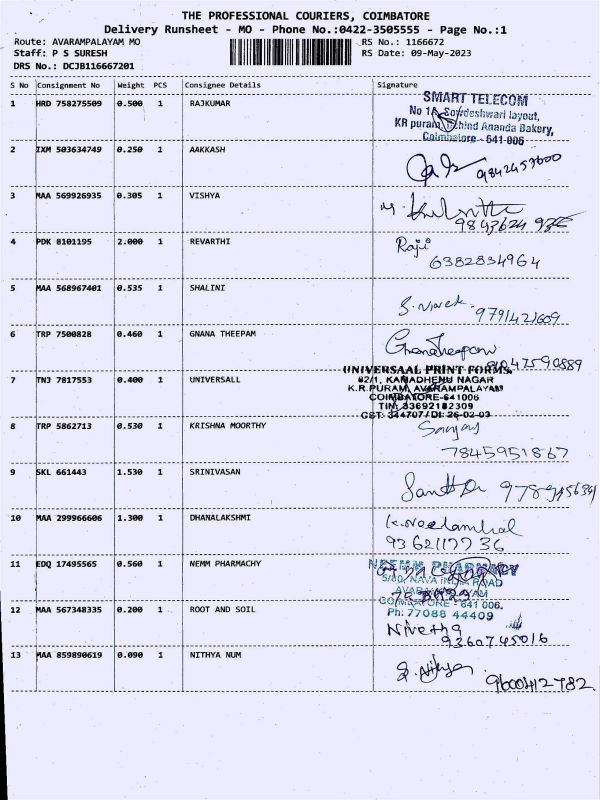 THE PROFESSIONAL COURIERS, COIMBATORE
Delivery Runsheet - MO - Phone No.:0422-3505555 - Page No.:1
Route: AVARAMPALAYAM MO RS No.: 1166672
Staff: P S SURESH RS Date: 09-May-2023
DRS No.: DCJB116667201
S No Consignment No Weight PCS Consignee Details Signature
1 HRD 758275509 0.500 1 RAJKUMAR
SMART TELECOM
No 1A, Sowdeshwari layout,
KR puram, Behind Ananda Bakery,
Coimbatore - 641 006
2 IXM 503634749 0.250 1 AAKKASH
9842457600
3 MAA 569926935 0.305 1 VISHYA
4 PDK 8101195 2.000 1 REVARTHI Raji
6382834964
5 MAA 568967401 0.535 1 SHALINI
S. Vivek 9791421609
6 TRP 7500828 0.460 1 GNANA THEEPAM GnanaTheepam
7 TNJ 7817553 0.400 1 UNIVERSALL
UNIVERSAAL PRINT FORMS,
82/1, KAMADHENU NAGAR
K.R.PURAM, AVARAMPALAYAM
COIMBATORE-641006
TIN: 33692182309
CST: 344707/Dt: 26-02-03
8 TRP 5862713 0.530 1 KRISHNA MOORTHY Sanjay
7845951867
9 SKL 661443 1.530 1 SRINIVASAN
10 MAA 299966606 1.300 1 DHANALAKSHMI K. Neelambal
9362117736
11 EDQ 17495565 0.560 1 NEMM PHARMACHY
NEEMM PHARMACY
5/80, NAVA INDIA ROAD
AVARAMPALAYAM
COIMBATORE - 641 006.
Ph: 77088 44409
12 MAA 567348335 0.200 1 ROOT AND SOIL Nivetha
9360745016
13 MAA 859890619 0.090 1 NITHYA NUM S. Nithya
9600412782.